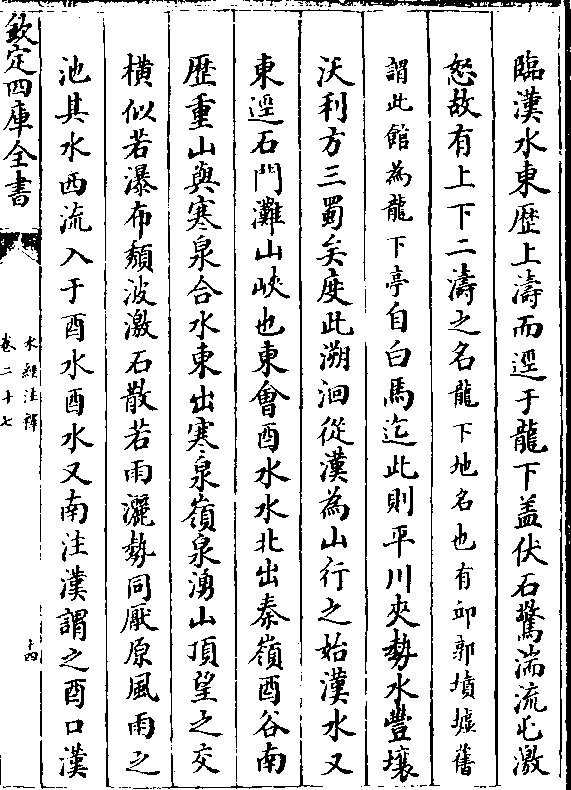 臨漢水東歴上濤而逕于龍下盖伏石驚湍流屯激
怒故有上下二濤之名龍下地名也有邱郭墳墟舊
謂此館為龍下亭自白馬迄此則平川夾勢水豐壤
沃利方三蜀矣度此溯洄從漢為山行之始漢水又
東逕石門灘山峽也東會酉水水北出秦嶺酉谷南
歴重山與寒泉合水東出寒泉嶺泉湧山頂望之交
橫似若瀑布頽波激石散若雨灑勢同厭原風雨之
池其水西流入于酉水酉水又南注漢謂之酉口漢
欽定四庫全書
水經注釋
卷二十七
十四